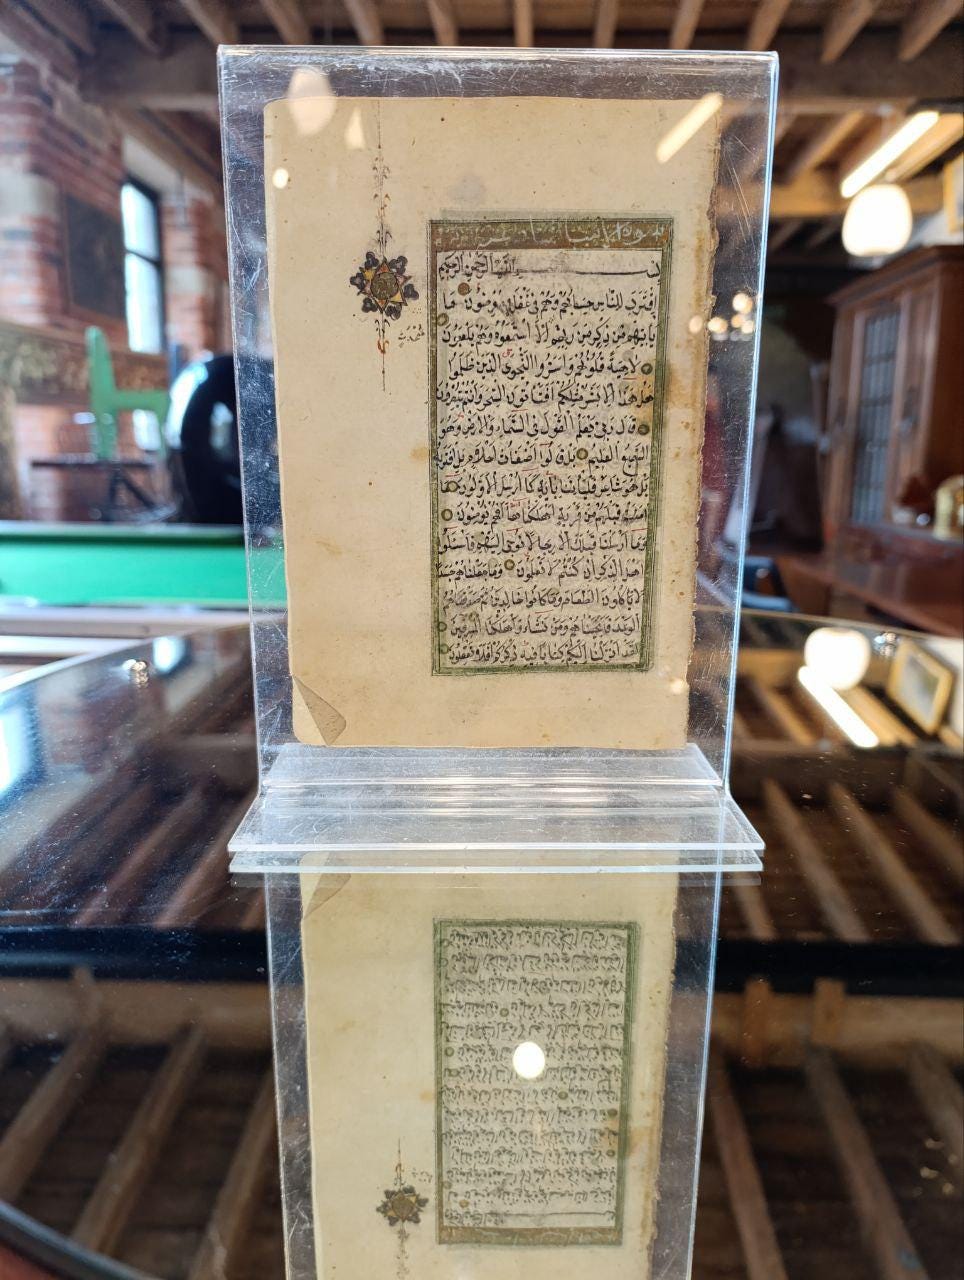 سورة الانبياء
بسم الله الرحمن الرحيم
اقترب للناس حسابهم وهم في غفلة معرضون ما
ياتيهم من ذكر من ربهم الا استمعوه وهم يلعبون
محدث
لاهية قلوبهم واسروا النجوى الذين ظلموا
هل هذا الا بشر مثلكم افتاتون السحر وانتم تبصرون
قال ربي يعلم القول في السماء والارض وهو
السميع العليم بل قالوا اضغاث احلام بل افتريه
بل هو شاعر فلياتنا باية كما ارسل الاولون ما
امنت قبلهم من قرية اهلكناها افهم يؤمنون
وما ارسلنا قبلك الا رجالا نوحي اليهم فاسئلوا
اهل الذكر ان كنتم لا تعلمون وما جعلناهم جسدا
لا ياكلون الطعام وما كانوا خالدين ثم صدقناهم
الوعد فانجيناهم ومن نشاء واهلكنا المسرفين
لقد انزلنا اليكم كتابا فيه ذكركم افلا تعقلون